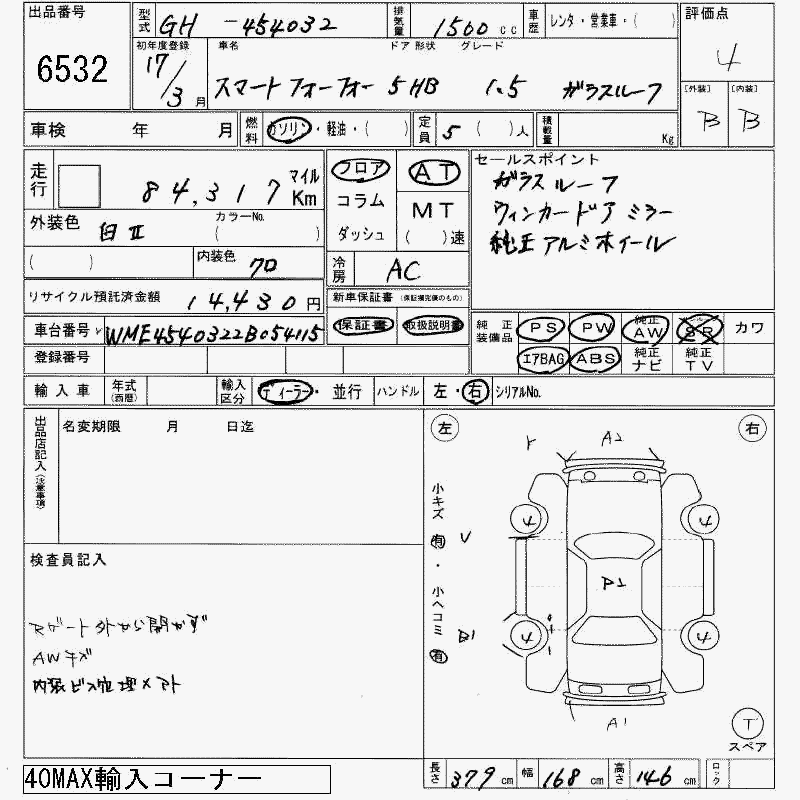 出品番号
6532
型式 GH -454032
排気量 1500 cc
車歴 レンタ・営業車・( )
評価点
4
初年度登録
17/3月
車名 ドア 形状 グレード
スマートフォーフォー 5HB 1.5 ガラスルーフ
[外装] [内装]
B B
車検 年 月
燃料 ガソリン・軽油・( )
定員 5 ( )人
積載量 Kg
走行 84,317 マイル Km
フロア AT
コラム MT
ダッシュ ( )速
セールスポイント
ガラスルーフ
ウィンカードアミラー
純正アルミホイール
外装色 白II
カラーNo.
( )
( )
内装色 クロ
冷房 AC
リサイクル預託済金額 14,430円
新車保証書 (保証継完備のもの)
保証書 取扱説明書
車台番号 WME4540322B054115
登録番号
純正装備品 PS PW 純正AW SR カワ
エアBAG ABS 純正ナビ 純正TV
輸入車 年式(西暦)
輸入区分 ディーラー・並行
ハンドル 左・右
シリアルNo.
出品店記入(注意事項)
名変期限 月 日迄
検査員記入
Rゲート外から開かず
AWキズ
内張ビス処理メアト
左 右
A2
小キズ 有 ・ 小ヘコミ 有
V
B1
4 4
P1
4 4
A1
T
スペア
長さ 379 cm 幅 168 cm 高さ 146 cm ロック
40MAX輸入コーナー